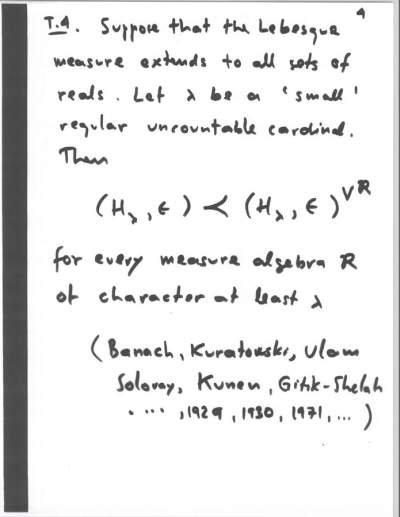 4
T.4. Suppose that the Lebesgue
measure extends to all sets of
reals. Let λ be a 'small'
regular uncountable cardinal.
Then
(H_λ, ∈) ≺ (H_λ, ∈)^{V^R}
for every measure algebra R
of character at least λ
(Banach, Kuratowski, Ulam
Solovay, Kunen, Gitik-Shelah
...., 1929, 1930, 1971, ...)